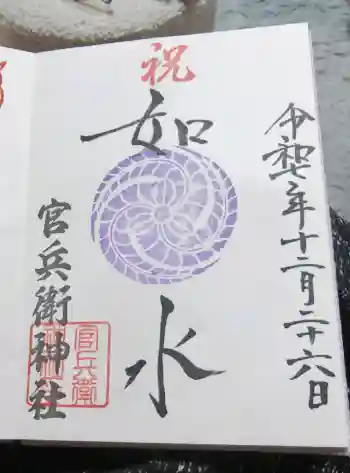 令和七年十二月二十六日
祝
如水
官兵衛神社
官兵衛
神社